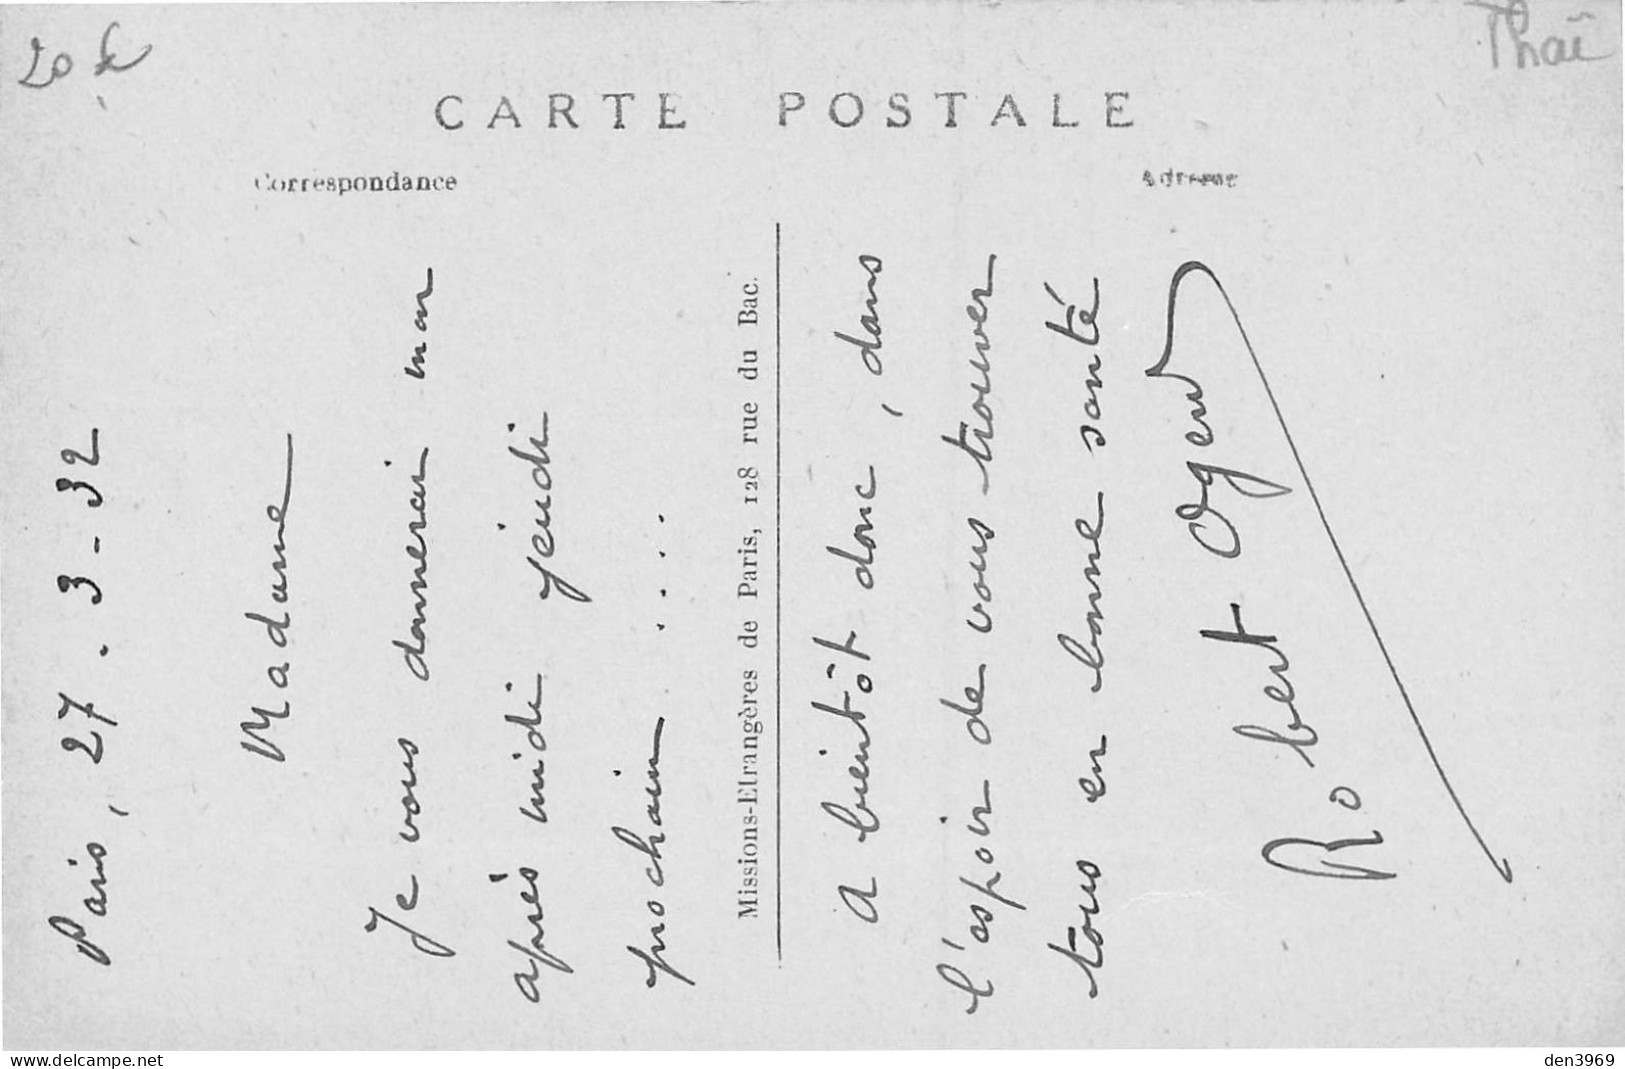 20 f
Thaï
CARTE POSTALE
Correspondance
Adresse
Paris, 27.3-32
Madame
Je vous donnerai mon
après midi jeudi
prochain ....
Missions-Etrangères de Paris, 128 rue du Bac.
A bientôt donc, dans
l'espoir de vous trouver
tous en bonne santé
Robert
www.delcampe.net
den3969